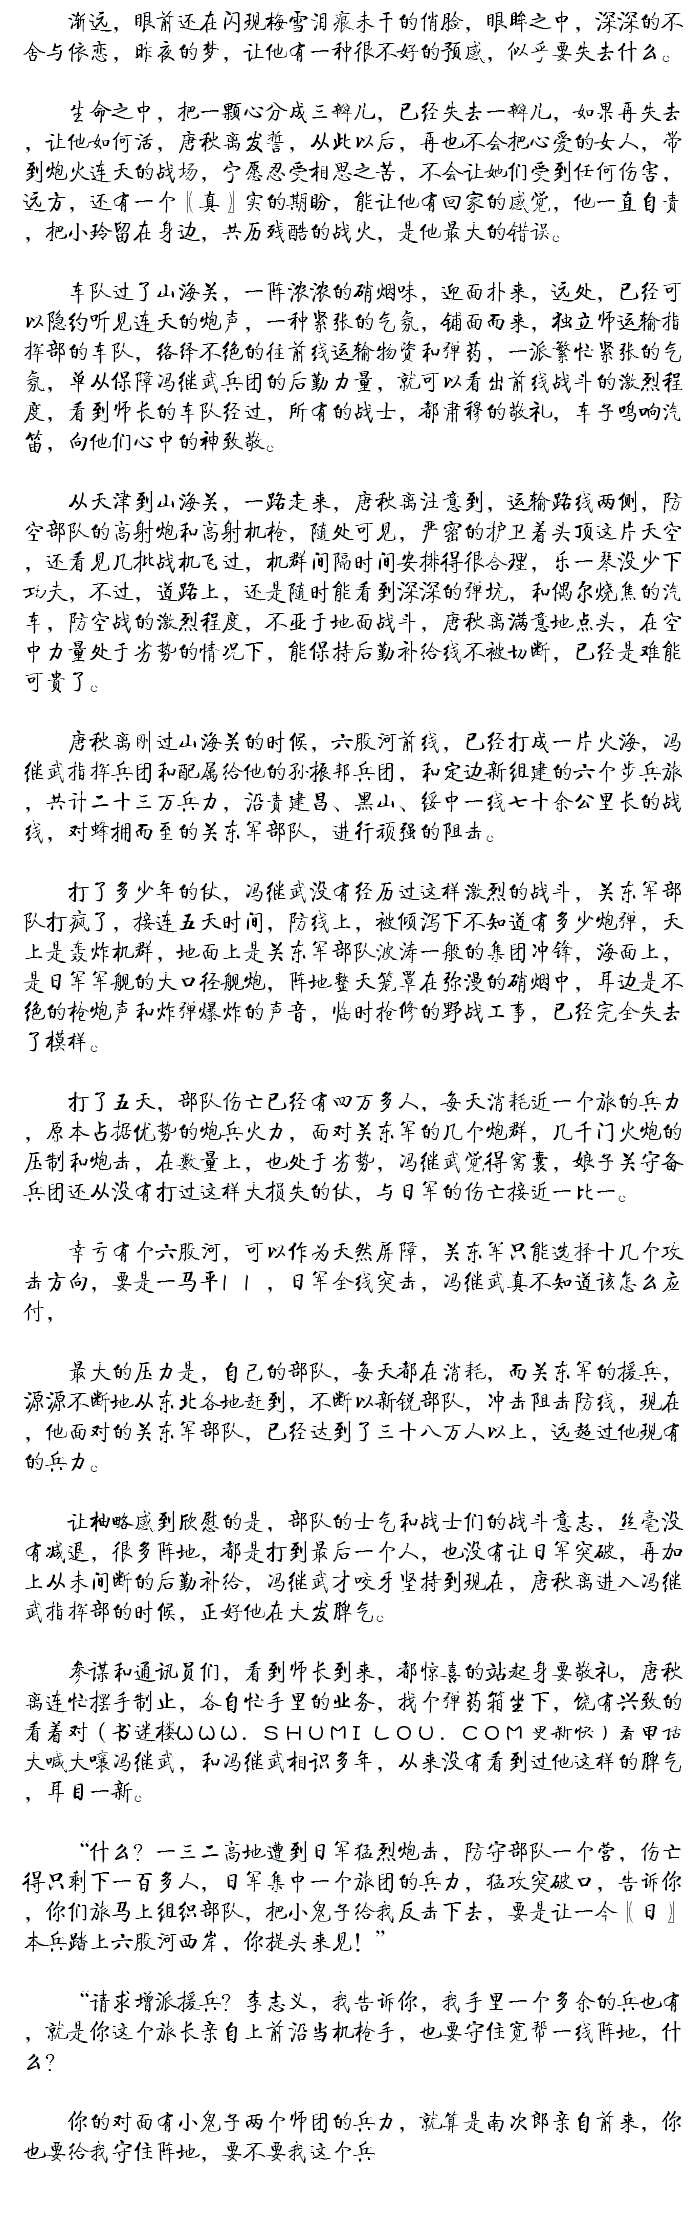 渐远，眼前还在闪现梅雪泪痕未干的俏脸，眼眸之中，深深的不
舍与依恋，昨夜的梦，让他有一种很不好的预感，似乎要失去什么。
生命之中，把一颗心分成三瓣儿，已经失去一瓣儿，如果再失去
，让他如何活，唐秋离发誓，从此以后，再也不会把心爱的女人，带
到炮火连天的战场，宁愿忍受相思之苦，不会让她们受到任何伤害，
远方，还有一个〖真〗实的期盼，能让他有回家的感觉，他一直自责
，把小玲留在身边，共历残酷的战火，是他最大的错误。
车队过了山海关，一阵浓浓的硝烟味，迎面扑来，远处，已经可
以隐约听见连天的炮声，一种紧张的气氛，铺面而来，独立师运输指
挥部的车队，络绎不绝的往前线运输物资和弹药，一派繁忙紧张的气
氛，单从保障冯继武兵团的后勤力量，就可以看出前线战斗的激烈程
度，看到师长的车队经过，所有的战士，都肃穆的敬礼，车子鸣响汽
笛，向他们心中的神致敬。
从天津到山海关，一路走来，唐秋离注意到，运输路线两侧，防
空部队的高射炮和高射机枪，随处可见，严密的护卫着头顶这片天空
，还看见几批战机飞过，机群间隔时间安排得很合理，乐一琴没少下
功夫，不过，道路上，还是随时能看到深深的弹坑，和偶尔烧焦的汽
车，防空战的激烈程度，不亚于地面战斗，唐秋离满意地点头，在空
中力量处于劣势的情况下，能保持后勤补给线不被切断，已经是难能
可贵了。
唐秋离刚过山海关的时候，六股河前线，已经打成一片火海，冯
继武指挥兵团和配属给他的孙振邦兵团，和定边新组建的六个步兵旅
，共计二十三万兵力，沿责建昌、黑山、绥中一线七十余公里长的战
线，对蜂拥而至的关东军部队，进行顽强的阻击。
打了多少年的仗，冯继武没有经历过这样激烈的战斗，关东军部
队打疯了，接连五天时间，防线上，被倾泻下不知道有多少炮弹，天
上是轰炸机群，地面上是关东军部队波涛一般的集团冲锋，海面上，
是日军军舰的大口径舰炮，阵地整天笼罩在弥漫的硝烟中，耳边是不
绝的枪炮声和炸弹爆炸的声音，临时抢修的野战工事，已经完全失去
了模样。
打了五天，部队伤亡已经有四万多人，每天消耗近一个旅的兵力
，原本占据优势的炮兵火力，面对关东军的几个炮群，几千门火炮的
压制和炮击，在数量上，也处于劣势，冯继武觉得窝囊，娘子关守备
兵团还从没有打过这样大损失的仗，与日军的伤亡接近一比一。
幸亏有个六股河，可以作为天然屏障，关东军只能选择十几个攻
击方向，要是一马平||，日军全线突击，冯继武真不知道该怎么应
付，
最大的压力是，自己的部队，每天都在消耗，而关东军的援兵，
源源不断地从东北各地赶到，不断以新锐部队，冲击阻击防线，现在
，他面对的关东军部队，已经达到了三十八万人以上，远超过他现有
的兵力。
让柚略感到欣慰的是，部队的士气和战士们的战斗意志，丝毫没
有减退，很多阵地，都是打到最后一个人，也没有让日军突破，再加
上从未间断的后勤补给，冯继武才咬牙坚持到现在，唐秋离进入冯继
武指挥部的时候，正好他在大发脾气。
参谋和通讯员们，看到师长到来，都惊喜的站起身要敬礼，唐秋
离连忙摆手制止，各自忙手里的业务，找个弹药箱坐下，饶有兴致的
看着对（书迷楼WWW.SHUMILOU.COM更新快）着电话
大喊大嚷冯继武，和冯继武相识多年，从来没有看到过他这样的脾气
，耳目一新。
“什么？一三二高地遭到日军猛烈炮击，防守部队一个营，伤亡
得只剩下一百多人，日军集中一个旅团的兵力，猛攻突破口，告诉你
，你们旅马上组织部队，把小鬼子给我反击下去，要是让一今〖日〗
本兵踏上六股河西岸，你提头来见！”
“请求增派援兵？李志义，我告诉你，我手里一个多余的兵也有
，就是你这个旅长亲自上前沿当机枪手，也要守住宽帮一线阵地，什
么？
你的对面有小鬼子两个师团的兵力，就算是南次郎亲自前来，你
也要给我守住阵地，要不要我这个兵